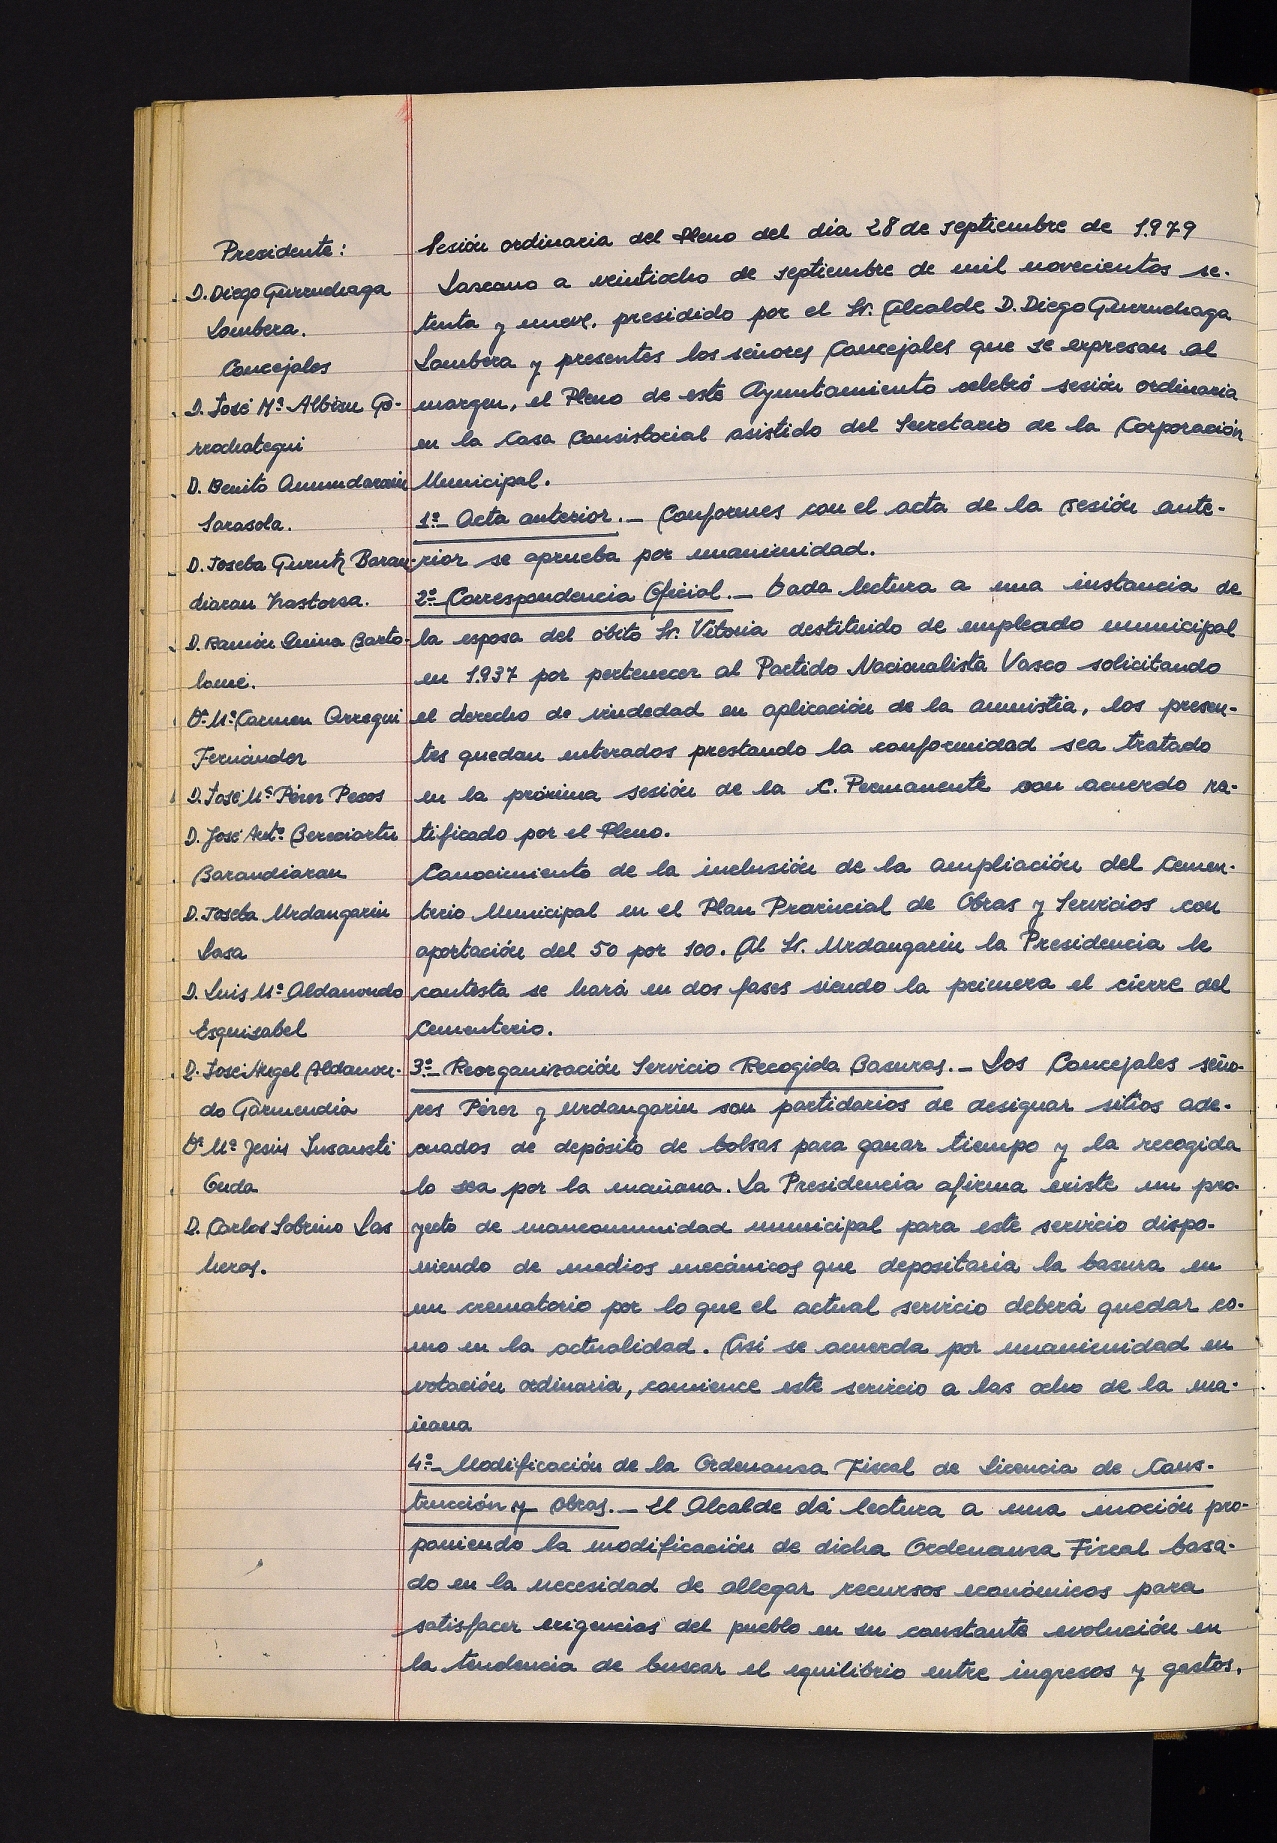 Presidente:
D. Diego Gurruchaga
Lambera.
Concejales
D. José Mª Albisu Go-
rrochategui
D. Benito Amundarain
Sarasola.
D. Joseba Gurutz Baran-
diaran
D. Ramón Barto-
lomé.
Dª Mª Carmen Arregui
Fernández
D. José Mª Pérez Pesos
D. José Antº Bereciartu
Barandiaran
D. Joseba Urdangarin
Lasa
D. Luis Mª Aldanondo
Esquisabel
D. José Angel Aldanon-
do Garmendia
Dª Mª Jesús Insausti
D. Carlos Sobrino Las
heras.
Sesión ordinaria del Pleno del día 28 de septiembre de 1.979
Lazcano a veintiocho de septiembre de mil novecientos se-
tenta y nueve. presidido por el Sr. Alcalde D. Diego Gurruchaga
Lambera y presentes los señores Concejales que se expresan al
margen, el Pleno de este Ayuntamiento celebró sesión ordinaria
en la Casa Consistorial asistido del Secretario de la Corporación
Municipal.
1º- Acta anterior.- Conformes con el acta de la sesión ante-
rior se aprueba por unanimidad.
2º- Correspondencia Oficial.- Dada lectura a una instancia de
la esposa del óbito Sr. Vitoria destituido de empleado municipal
en 1.937 por pertenecer al Partido Nacionalista Vasco solicitando
el derecho de viudedad en aplicación de la amnistia, los presen-
tes quedan enterados prestando la conformidad sea tratado
en la próxima sesión de la C. Permanente con acuerdo ra-
tificado por el Pleno.
Conocimiento de la inclusión de la ampliación del Cemen-
terio Municipal en el Plan Provincial de Obras y Servicios con
aportación del 50 por 100. Al Sr. Urdangarin la Presidencia le
contesta se hará en dos fases siendo la primera el cierre del
Cementerio.
3º- Reorganización Servicio Recogida Basuras.- Los Concejales seño-
res Pérez y Urdangarin son partidarios de designar sitios ade-
cuados de depósito de bolsas para ganar tiempo y la recogida
lo sea por la mañana. La Presidencia afirma existe un pro-
yecto de mancomunidad municipal para este servicio dispo-
niendo de medios mecánicos que depositaria la basura en
un crematorio por lo que el actual servicio deberá quedar co-
mo en la actualidad. Así se acuerda por unanimidad en
votación ordinaria, comience este servicio a las ocho de la ma-
ñana
4º- Modificación de la Ordenanza Fiscal de Licencia de Cons-
trucción y Obras.- El Alcalde dá lectura a una moción pro-
poniendo la modificación de dicha Ordenanza Fiscal basa-
do en la necesidad de allegar recursos económicos para
satisfacer exigencias del pueblo en su constante evolución en
la tendencia de buscar el equilibrio entre ingresos y gastos.